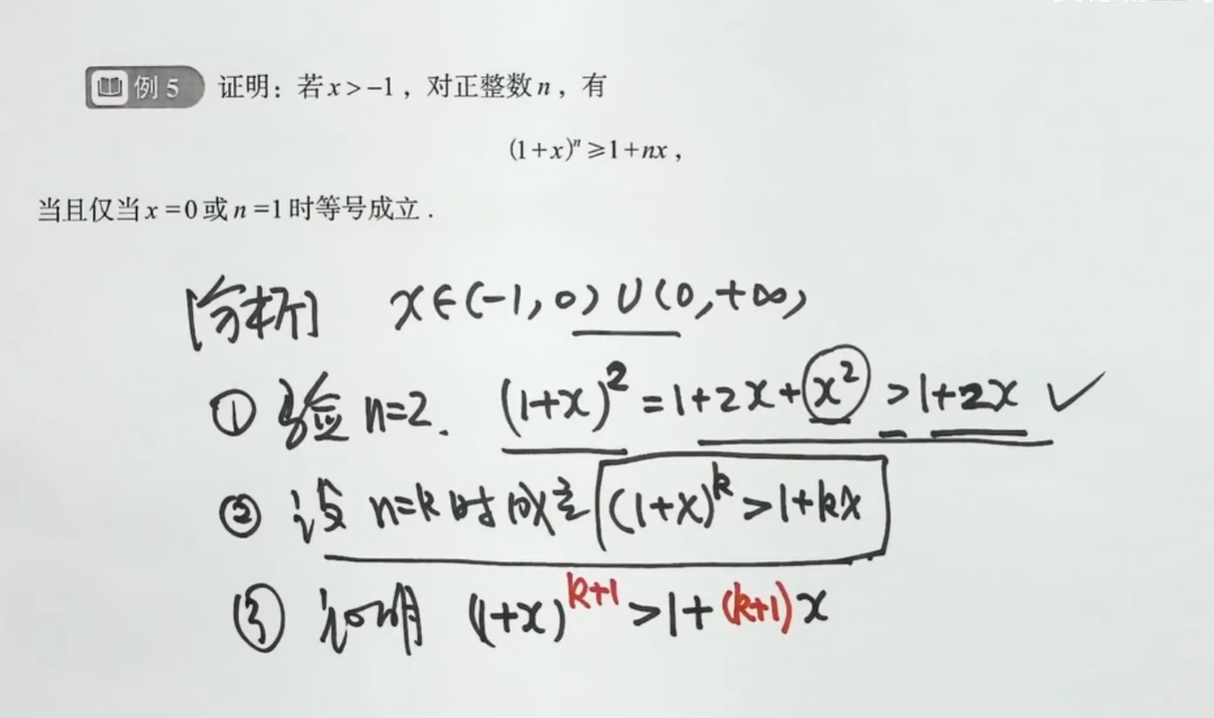 例5 证明：若x>-1，对正整数n，有
(1+x)ⁿ≥1+nx，
当且仅当x=0或n=1时等号成立.
[分析] x∈(-1,0)∪(0,+∞)
① 验n=2. (1+x)²=1+2x+x²>1+2x ✓
② 设n=k时成立 (1+x)ᵏ>1+kx
③ 证明 (1+x)ᵏ⁺¹>1+(k+1)x